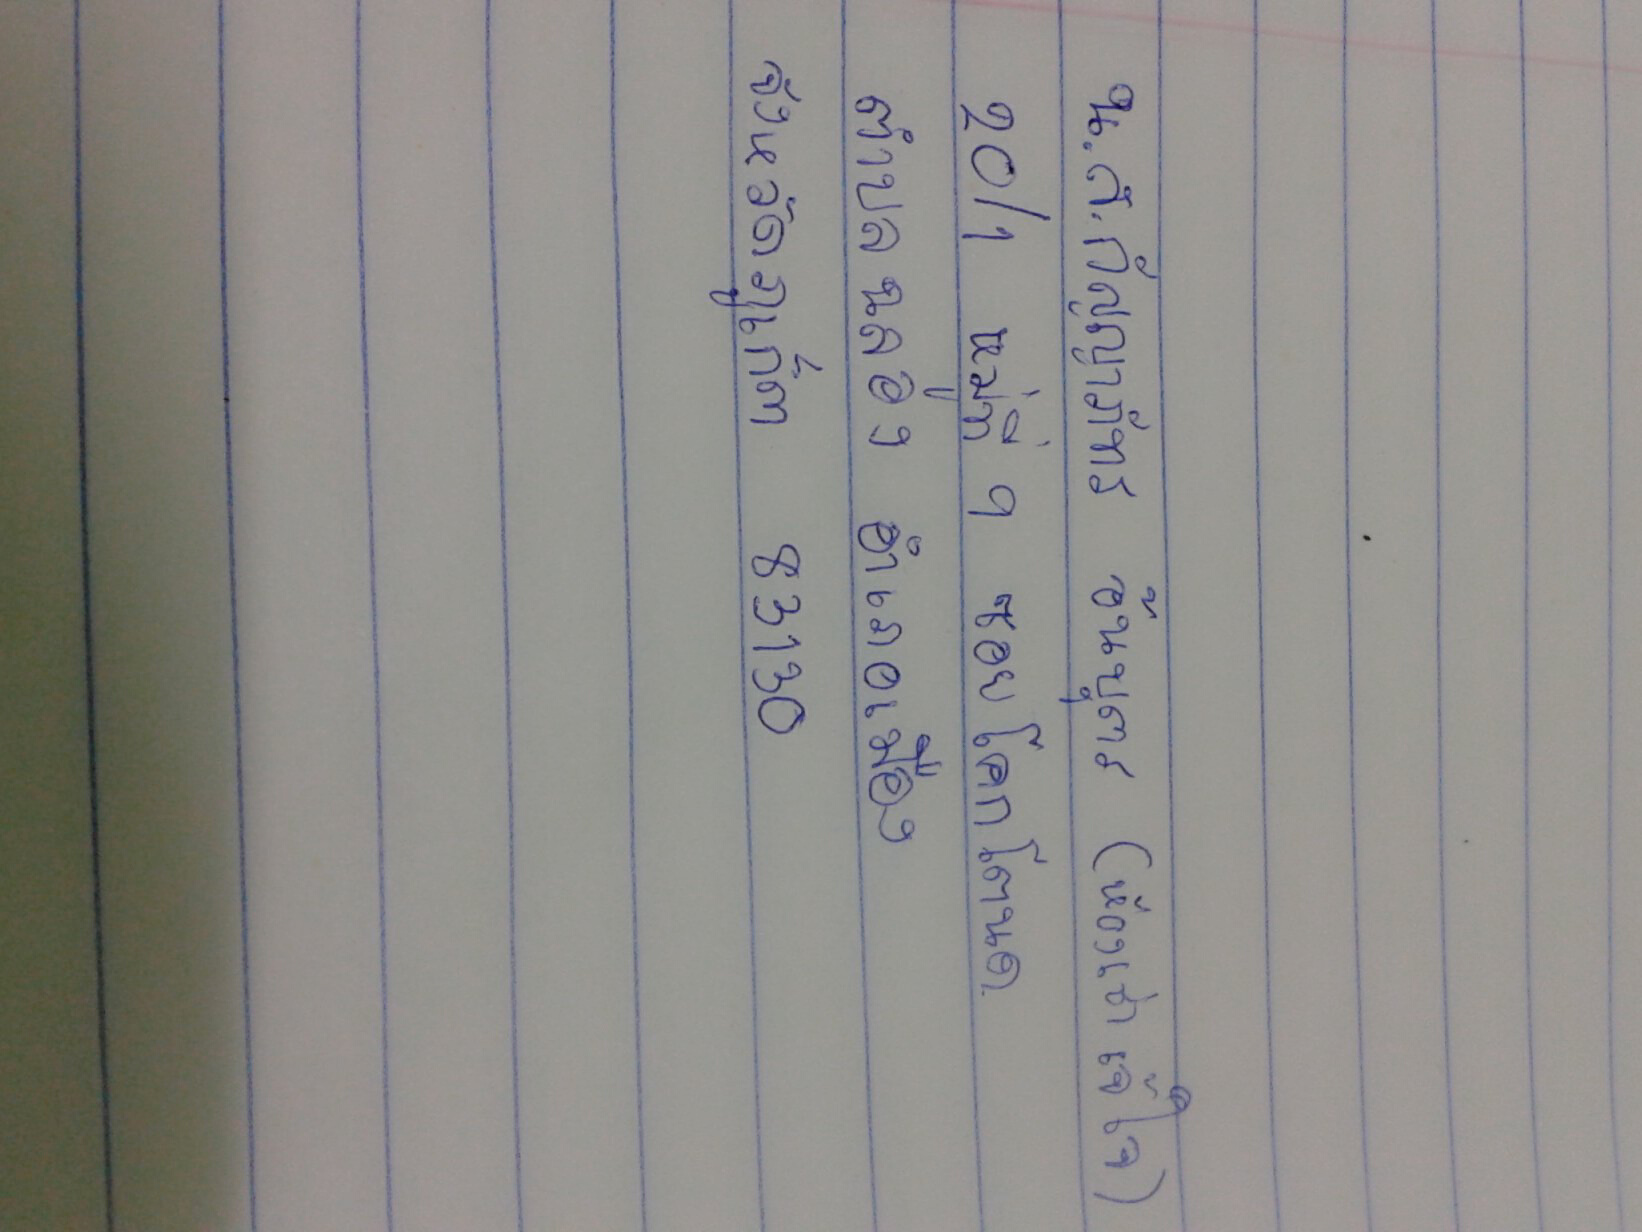 น.ส. กัญญาภัทร อ้นบุตร (ห้องเช่า เจ๊ใจ)
20/1 หมู่ที่ 9 ซอยโคกโตนด
ตำบลฉลอง อำเภอเมือง
จังหวัดภูเก็ต 83130